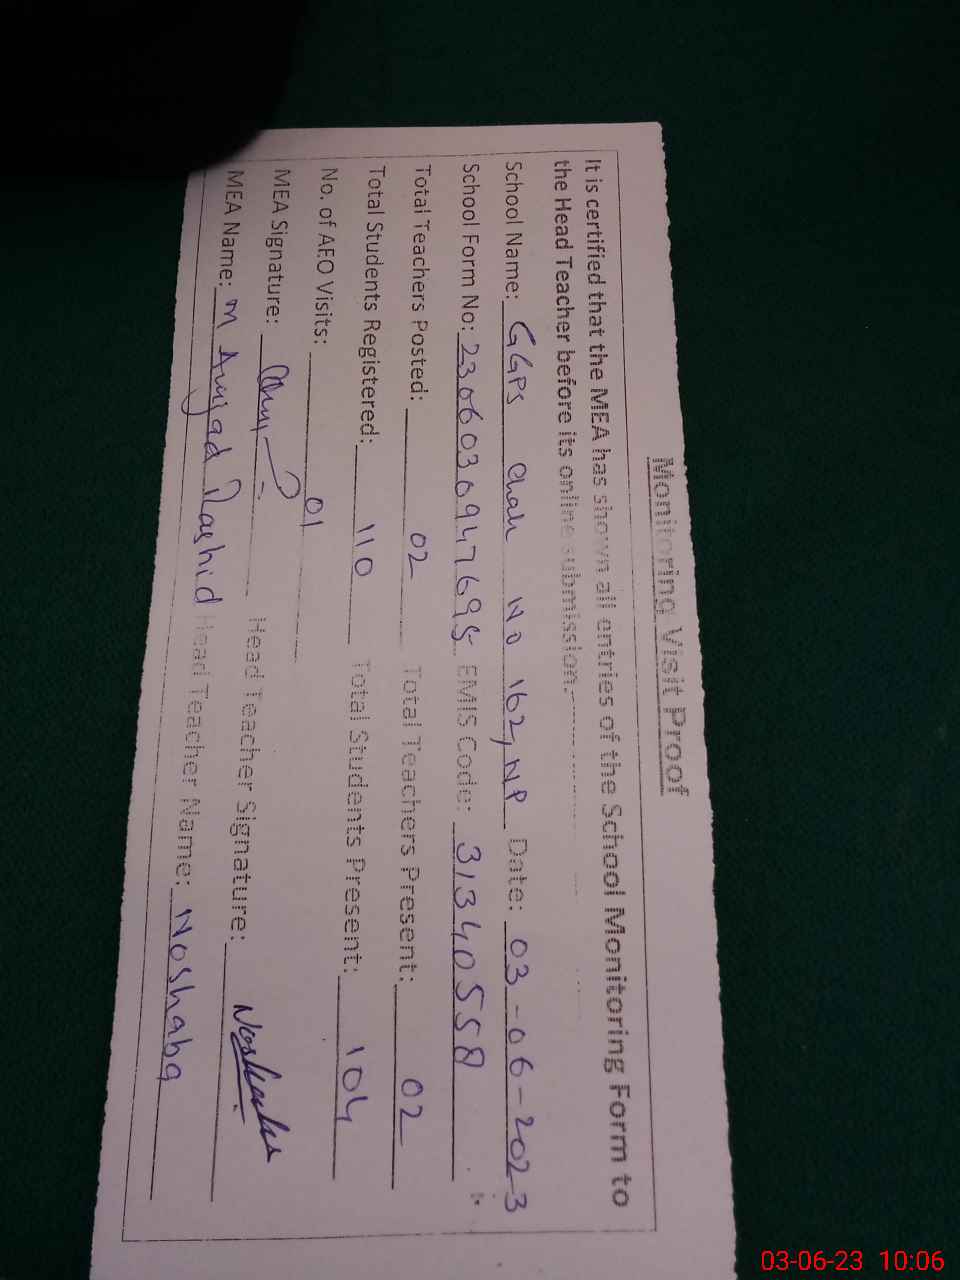 Monitoring Visit Proof
It is certified that the MEA has shown all entries of the School Monitoring Form to
the Head Teacher before its online submission.
School Name: GGPS Chak No 162, NP Date: 03-06-2023
School Form No: 2306030947695 EMIS Code: 31340558
Total Teachers Posted: 02 Total Teachers Present: 02
Total Students Registered: 110 Total Students Present: 104
No. of AEO Visits: 01
MEA Signature: Head Teacher Signature: Noshaba
MEA Name: M Amjad Rashid Head Teacher Name: Noshaba
03-06-23 10:06